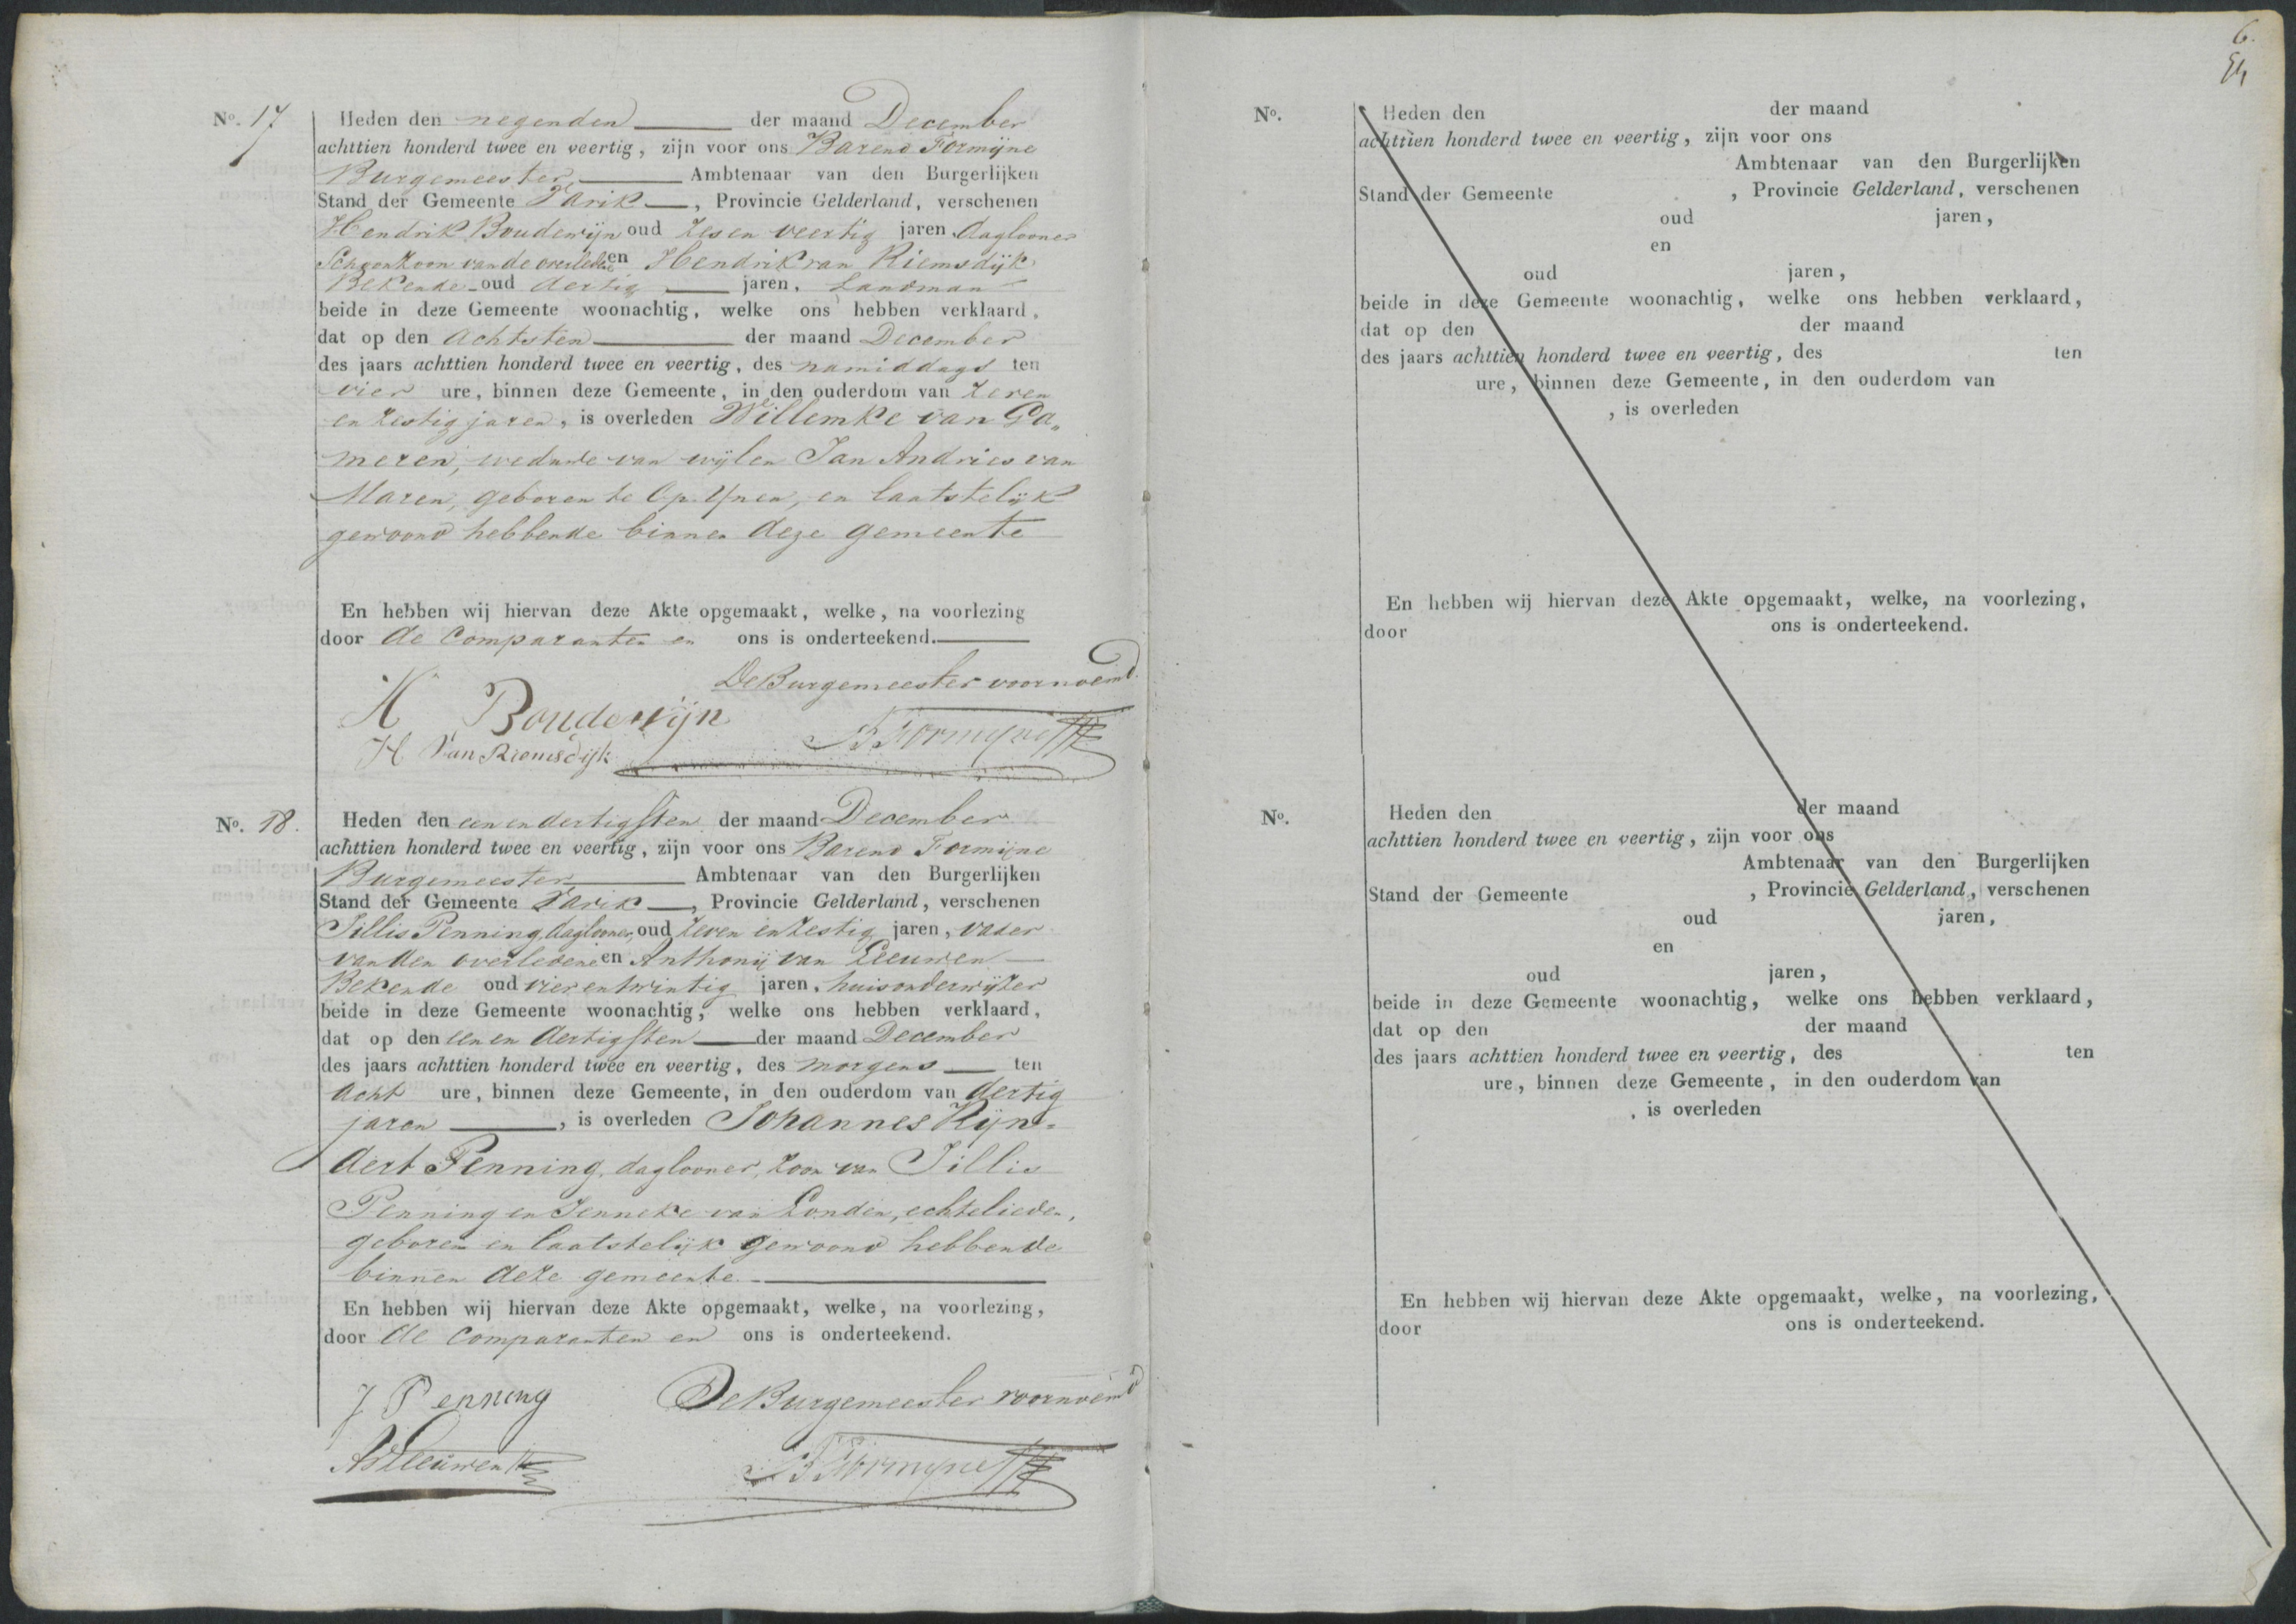 No. 17
Heden den negenden der maand December
achttien honderd twee en veertig, zijn voor ons Barend Formijne
Burgemeester Ambtenaar van den Burgerlijken
Stand der Gemeente Varik, Provincie Gelderland, verschenen
Hendrik Boudewijn oud zes en veertig jaren, daglooner
Schoonzoon van de overledene en Hendrik van Riemsdijk
Bekende oud dertig jaren, Landman
beide in deze Gemeente woonachtig, welke ons hebben verklaard,
dat op den achtsten der maand December
des jaars achttien honderd twee en veertig, des namiddags ten
vier ure, binnen deze Gemeente, in den ouderdom van zeven
en zestig jaren, is overleden Willemke van Ga„
meren, weduwe van wijlen Jan Andries van
Maren, geboren te Op-Ijnen, en laatstelijk
gewoond hebbende binnen deze gemeente
En hebben wij hiervan deze Akte opgemaakt, welke, na voorlezing
door de Comparanten en ons is onderteekend.
De Burgemeester voornoemd.
H Boudewijn
B Formijne
H Van Riemsdijk
No. 18.
Heden den een en dertigsten der maand December
achttien honderd twee en veertig, zijn voor ons Barend Formijne
Burgemeester Ambtenaar van den Burgerlijken
Stand der Gemeente Varik, Provincie Gelderland, verschenen
Jillis Penning, daglooner, oud zeven en zestig jaren, vader
van den overledene en Anthonij van Leeuwen
Bekende oud vier en twintig jaren, huisonderwijzer
beide in deze Gemeente woonachtig, welke ons hebben verklaard,
dat op den een en dertigsten der maand December
des jaars achttien honderd twee en veertig, des morgens ten
acht ure, binnen deze Gemeente, in den ouderdom van dertig
jaren, is overleden Johannes Rijn-
dert Penning, daglooner, zoon van Jillis
Penning en Jenneke van Londen, echtelieden,
geboren en laatstelijk gewoond hebbende
binnen deze gemeente.
En hebben wij hiervan deze Akte opgemaakt, welke, na voorlezing,
door de Comparanten en ons is onderteekend.
J Penning
De Burgemeester voornoemd
AvLeeuwen
B Formijne
6.
No.
Heden den der maand
achttien honderd twee en veertig, zijn voor ons
Ambtenaar van den Burgerlijken
Stand der Gemeente , Provincie Gelderland, verschenen
oud jaren,
en
oud jaren,
beide in deze Gemeente woonachtig, welke ons hebben verklaard,
dat op den der maand
des jaars achttien honderd twee en veertig, des ten
ure, binnen deze Gemeente, in den ouderdom van
, is overleden
En hebben wij hiervan deze Akte opgemaakt, welke, na voorlezing,
door ons is onderteekend.
No.
Heden den der maand
achttien honderd twee en veertig, zijn voor ons
Ambtenaar van den Burgerlijken
Stand der Gemeente , Provincie Gelderland, verschenen
oud jaren,
en
oud jaren,
beide in deze Gemeente woonachtig, welke ons hebben verklaard,
dat op den der maand
des jaars achttien honderd twee en veertig, des ten
ure, binnen deze Gemeente, in den ouderdom van
, is overleden
En hebben wij hiervan deze Akte opgemaakt, welke, na voorlezing,
door ons is onderteekend.